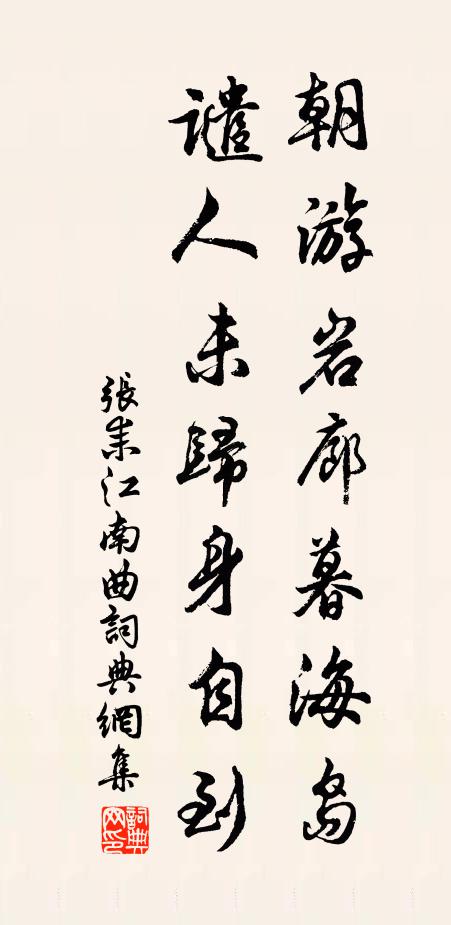 朝游岩廊暮海岛
谴人未歸身自到
張耒江南曲詞典網集
詞典網印